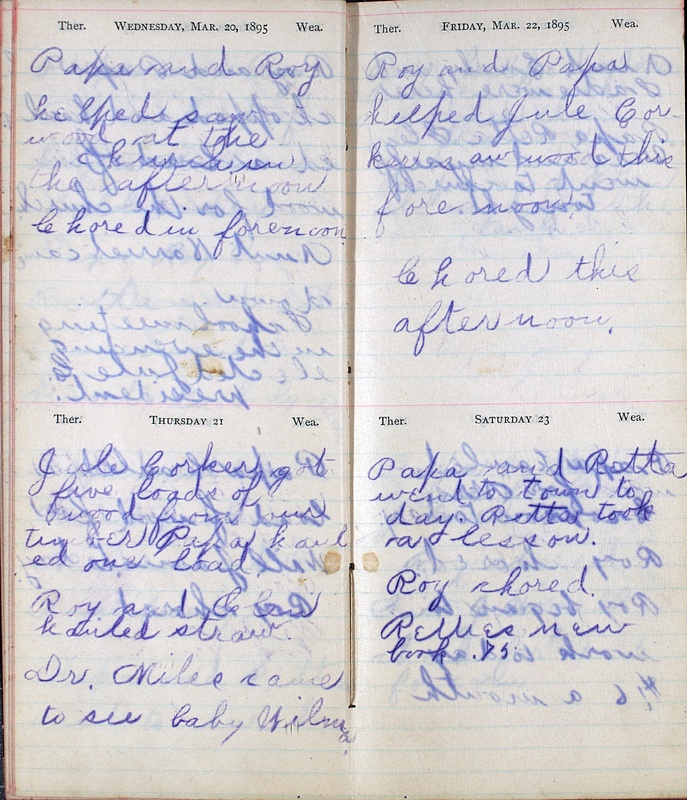 Ther. WEDNESDAY, MAR. 20, 1895 Wea.
Papa and Roy
helped saw
wood at the
Church in
the afternoon
Chored in forenoon
Ther. THURSDAY 21 Wea.
Jule Corker got
five loads of
wood from our
timber Papa haul
ed one load
Roy and
hauled straw.
Dr. Miles came
to see baby Wilma
Ther. FRIDAY, MAR. 22, 1895 Wea.
Roy and Papa
helped Jule Cor
ker saw wood this
fore noon.
Chored this
afternoon.
Ther. SATURDAY 23 Wea.
Papa and Retta
went to town to
day. Retta took
a lesson.
Roy chored.
Retties new
book .75